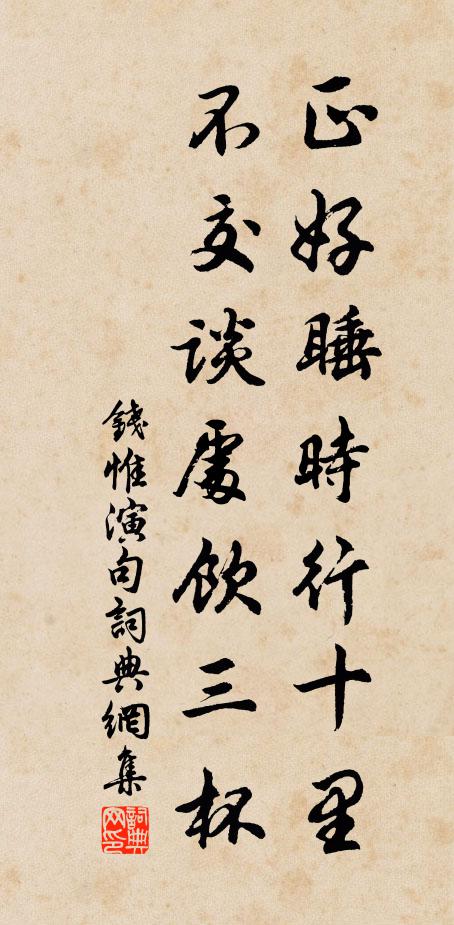 正好睡時行十里
不交談處飲三杯
錢惟演句詞典網集
詞典
网印